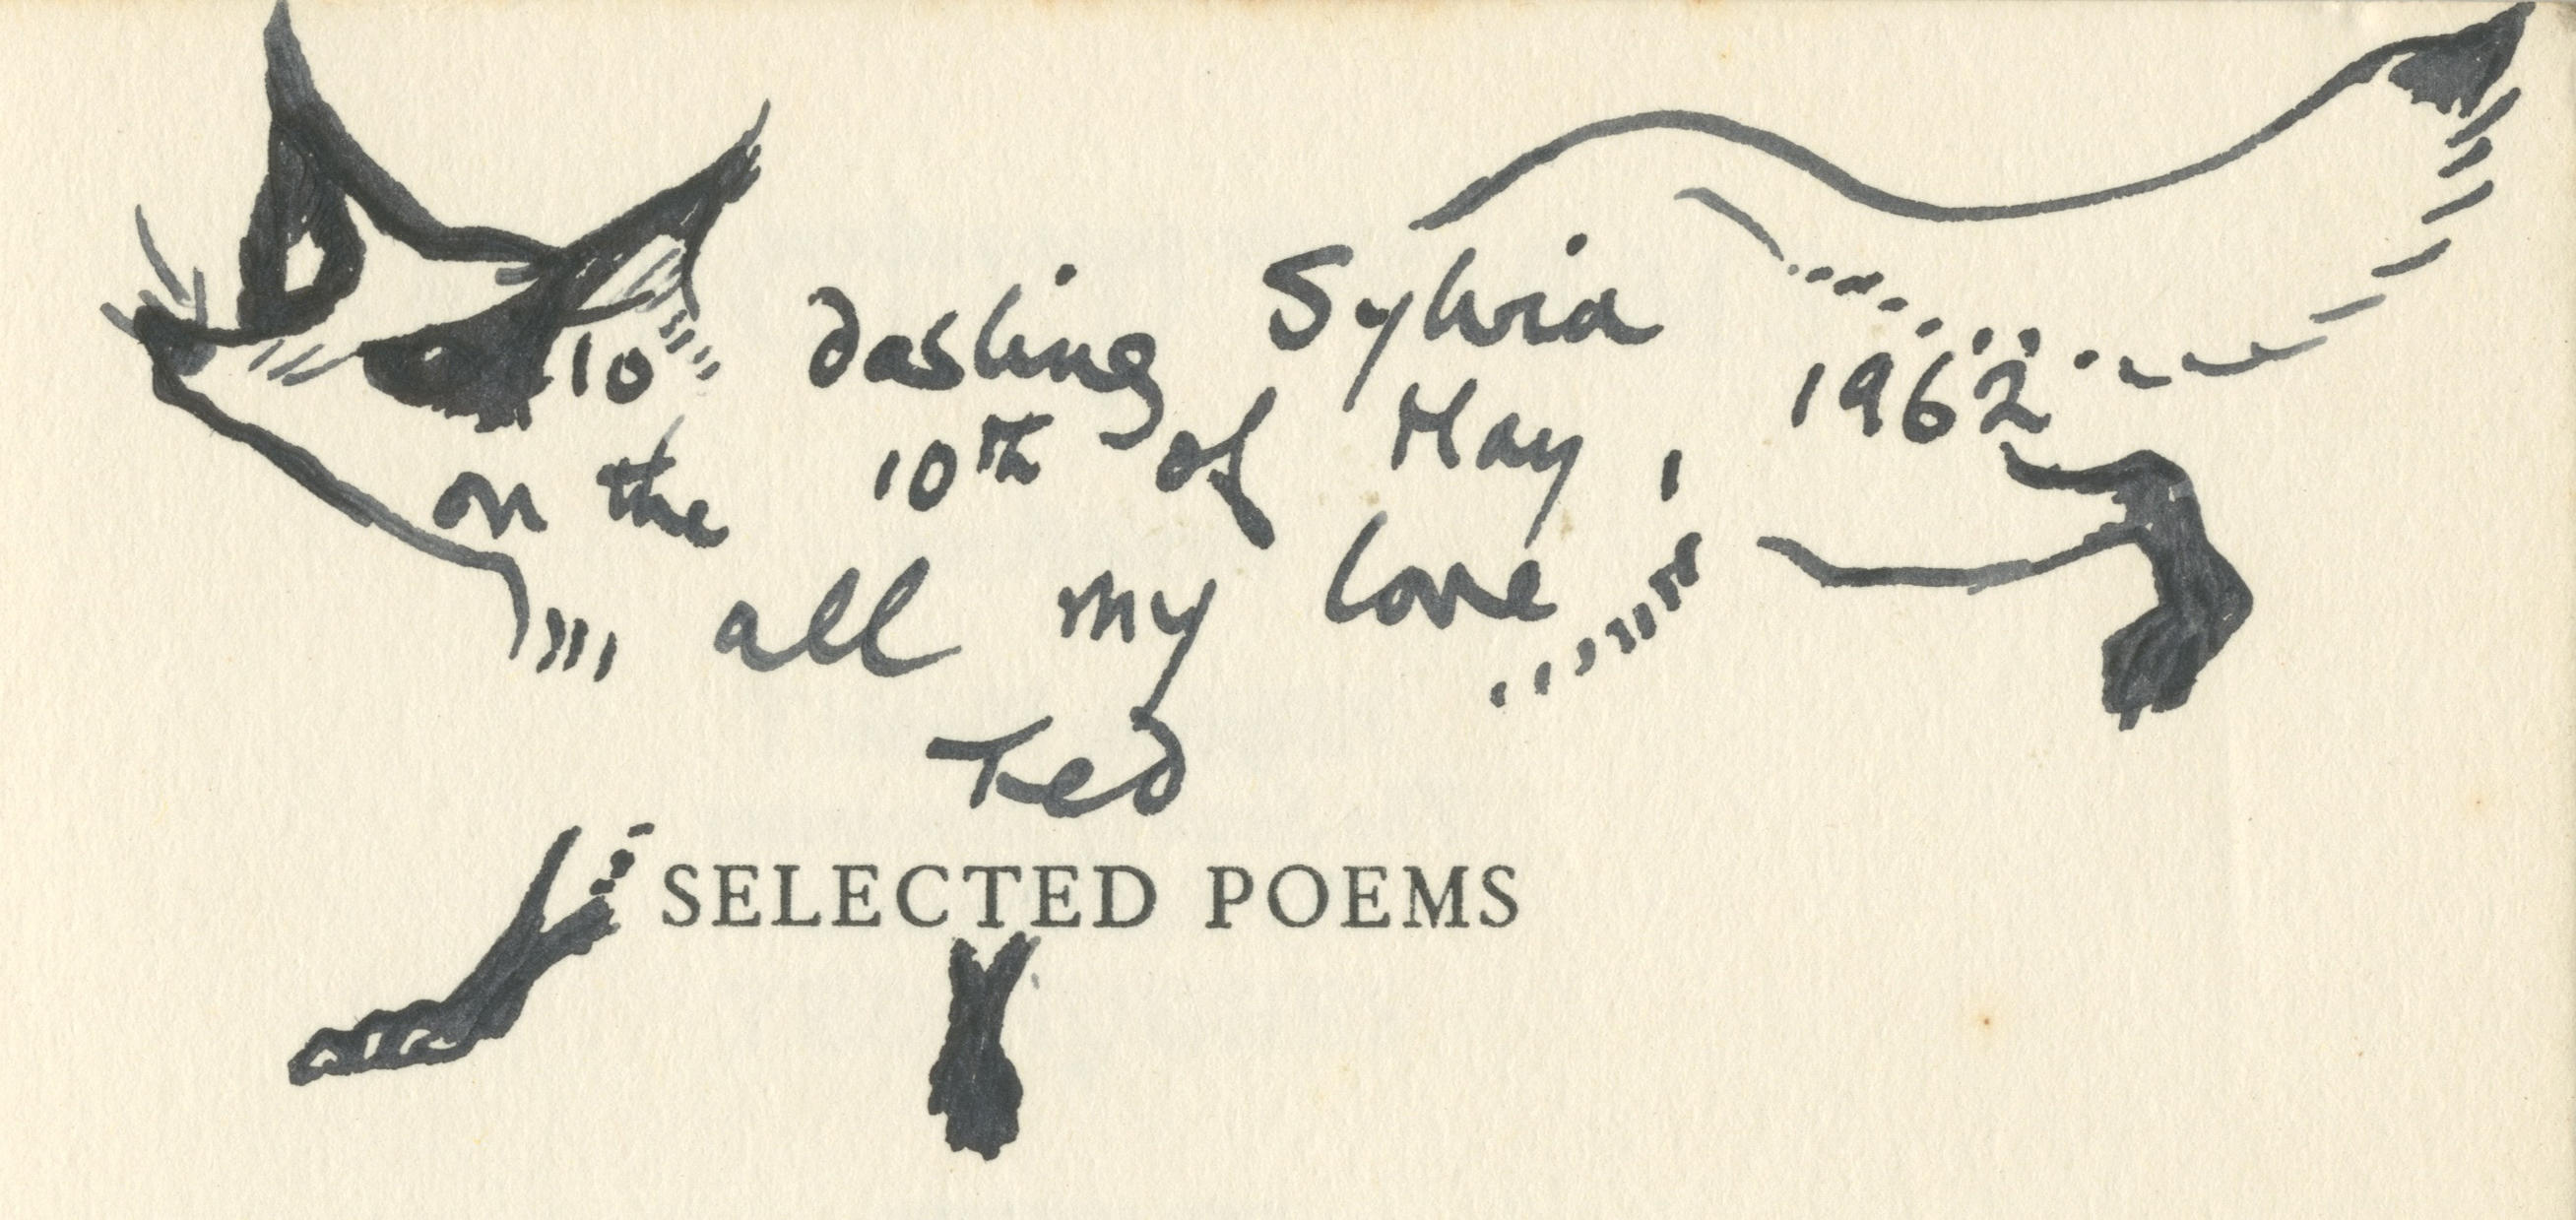 To darling Sylvia
on the 10th of May, 1962
all my love
Ted
SELECTED POEMS